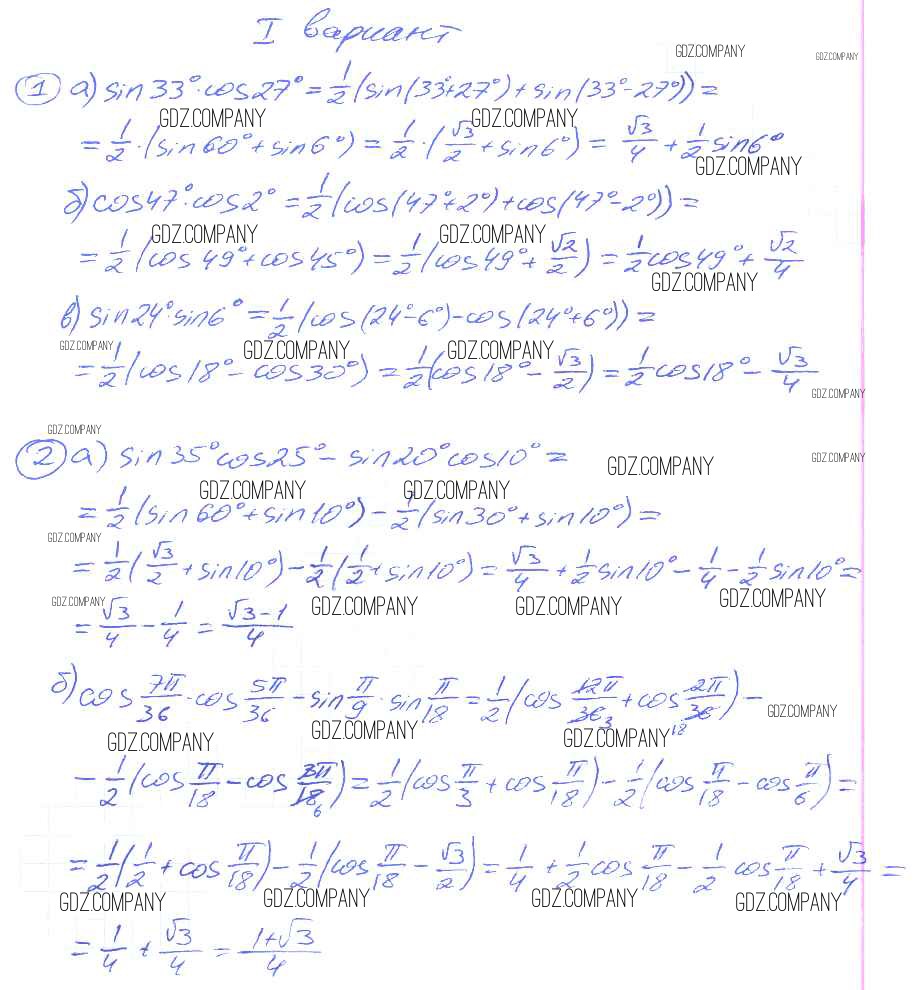 I вариант
GDZ.COMPANY GDZ.COMPANY
① а) sin33°·cos27° = 1/2(sin(33°+27°)+sin(33°-27°)) =
GDZ.COMPANY GDZ.COMPANY
= 1/2·(sin60°+sin6°) = 1/2·(√3/2+sin6°) = √3/4 + 1/2 sin6°
GDZ.COMPANY
б) cos47°·cos2° = 1/2(cos(47°+2°)+cos(47°-2°)) =
GDZ.COMPANY GDZ.COMPANY
= 1/2(cos49°+cos45°) = 1/2(cos49°+√2/2) = 1/2cos49°+√2/4
GDZ.COMPANY
в) sin24°·sin6° = 1/2(cos(24°-6°)-cos(24°+6°)) =
GDZ.COMPANY GDZ.COMPANY GDZ.COMPANY
= 1/2(cos18°-cos30°) = 1/2(cos18°-√3/2) = 1/2cos18°-√3/4
GDZ.COMPANY
GDZ.COMPANY
② а) sin35°cos25°-sin20°cos10° =
GDZ.COMPANY GDZ.COMPANY
GDZ.COMPANY GDZ.COMPANY
= 1/2(sin60°+sin10°)-1/2(sin30°+sin10°) =
GDZ.COMPANY
= 1/2(√3/2+sin10°)-1/2(1/2+sin10°) = √3/4+1/2sin10°-1/4-1/2sin10° =
GDZ.COMPANY GDZ.COMPANY GDZ.COMPANY GDZ.COMPANY
= √3/4-1/4 = √3-1/4
б) cos 7π/36·cos 5π/36-sin π/9·sin π/18 = 1/2(cos 12π/36 3+cos 2π/36 18)-
GDZ.COMPANY
GDZ.COMPANY GDZ.COMPANY GDZ.COMPANY
-1/2(cos π/18-cos 3π/18 6) = 1/2(cos π/3+cos π/18)-1/2(cos π/18-cos π/6) =
= 1/2(1/2+cos π/18)-1/2(cos π/18-√3/2) = 1/4+1/2cos π/18-1/2cos π/18+√3/4 =
GDZ.COMPANY GDZ.COMPANY GDZ.COMPANY GDZ.COMPANY
= 1/4+√3/4 = 1+√3/4